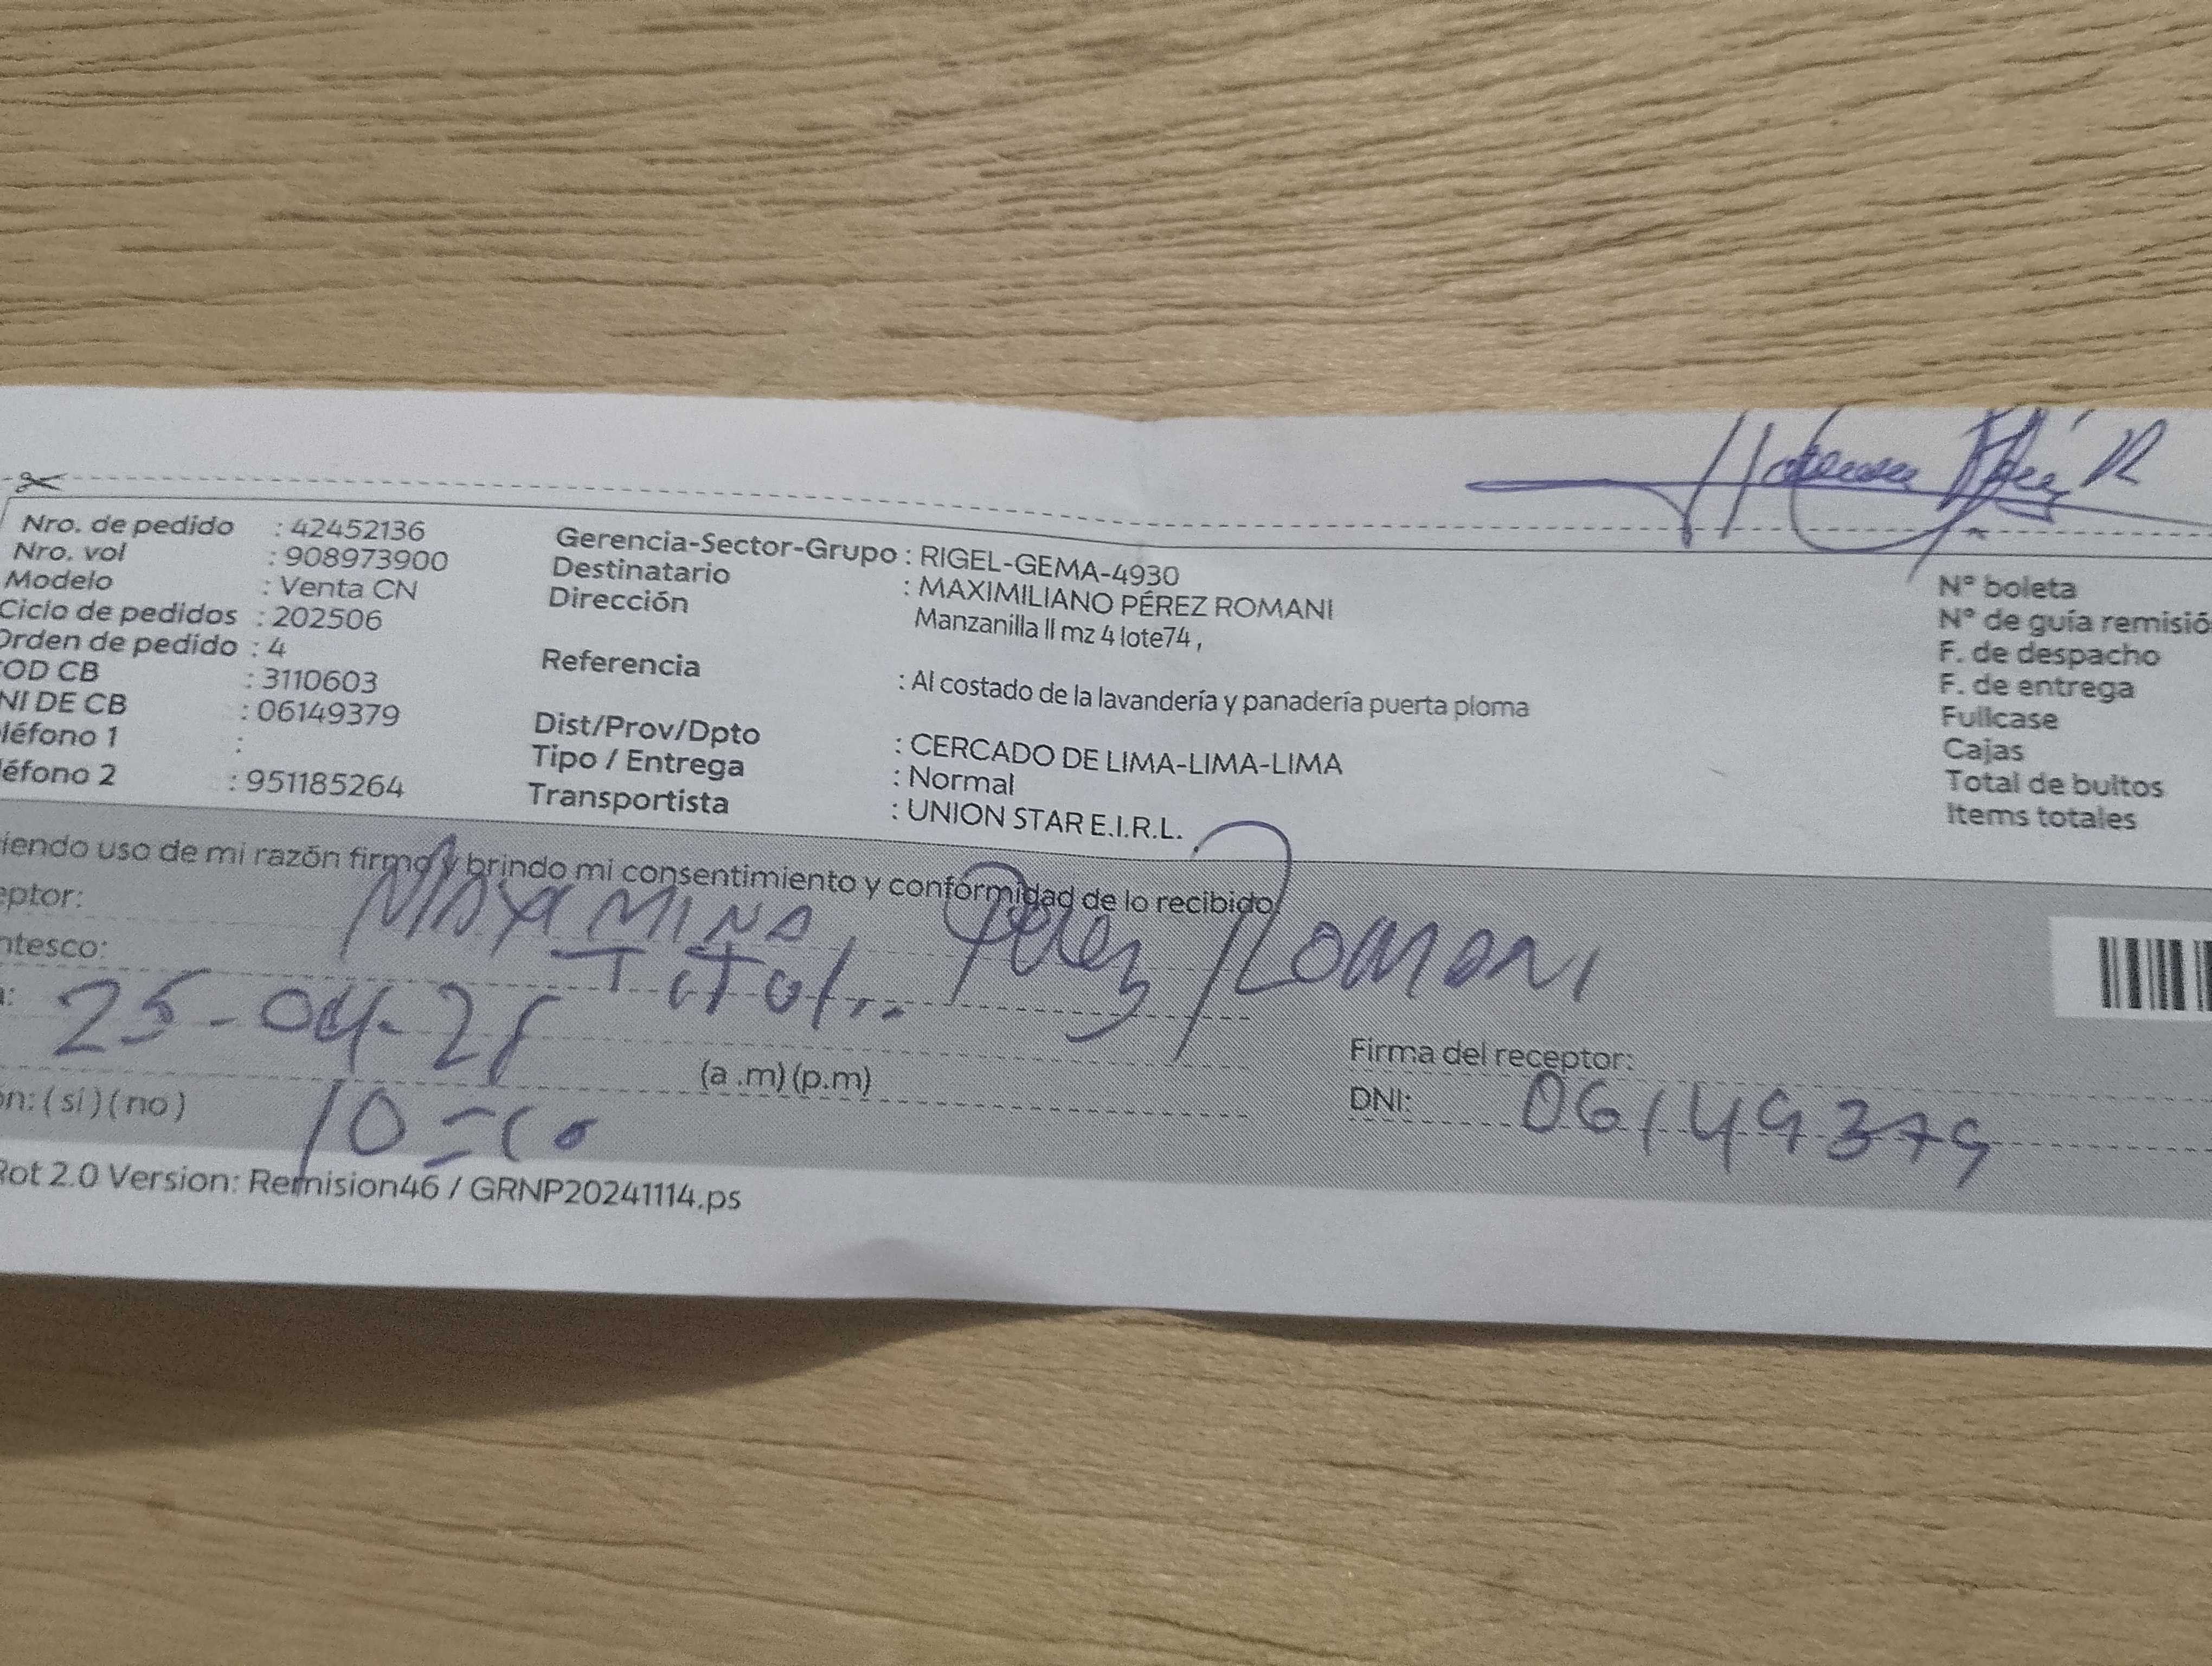 Nro. de pedido : 42452136
Nro. vol : 908973900
Modelo : Venta CN
Ciclo de pedidos : 202506
Orden de pedido : 4
OD CB : 3110603
NI DE CB : 06149379
léfono 1 :
éfono 2 : 951185264
Gerencia-Sector-Grupo : RIGEL-GEMA-4930
Destinatario : MAXIMILIANO PÉREZ ROMANI
Dirección Manzanilla II mz 4 lote74 ,
Referencia : Al costado de la lavandería y panadería puerta ploma
Dist/Prov/Dpto : CERCADO DE LIMA-LIMA-LIMA
Tipo / Entrega : Normal
Transportista : UNION STAR E.I.R.L.
N° boleta
N° de guía remisió
F. de despacho
F. de entrega
Fullcase
Cajas
Total de bultos
Items totales
iendo uso de mi razón firmo y brindo mi consentimiento y conformidad de lo recibido
eptor: Perez Romani
ntesco:
a: 25-04-25
(a .m) (p.m)
ón: ( si ) ( no )
Firma del receptor:
DNI: 06149379
Rot 2.0 Version: Remision46 / GRNP20241114.ps